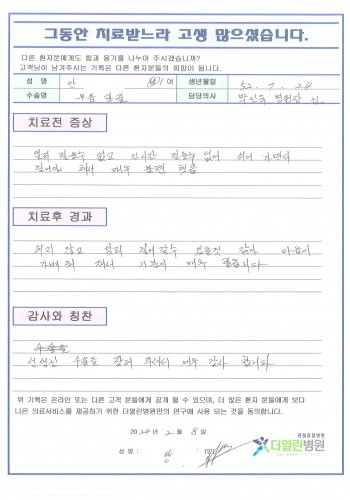 그동안 치료받느라 고생 많으셨습니다.
다른 환자분에게도 힘과 용기를 나누어 주시겠습니까?
고객님이 남겨주시는 기록은 다른 환자분들의 희망이 됩니다.
성 명 안 여 생년월일 52. 7. 24
수술명 우측 무릎 담당의사 병원장 님
치료전 증상
멀리 걸을수 없고 장시간 걸을수 없어 쉬어 가면서
걸어야 해서 매우 불편 했음
치료후 경과
쉬지 않고 멀리 걸어갈수 있을것 같아 마음이
가벼워 져서 기분이 매우 좋습니다
감사와 칭찬
수술을
선생님 수술을 잘해 주셔서 매우 감사 합니다
위 기록은 온라인 또는 다른 고객 분들에게 공개 될 수 있으며, 더 많은 환자 분들에게 보다
나은 의료서비스를 제공하기 위한 더열린병원만의 연구에 사용 되는 것을 동의합니다.
2024년 2월 8일
성 명 : 안 (인)
관절중점병원
더열린병원